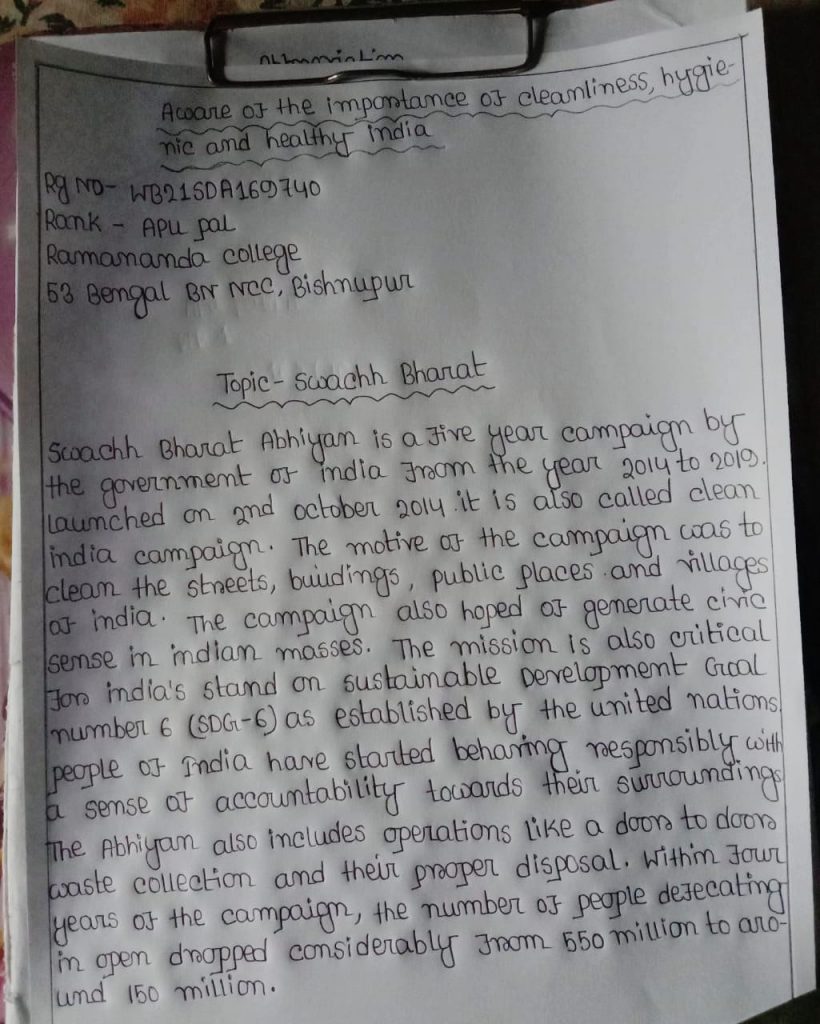 Aware of the importance of cleanliness, hygie-
nic and healthy india
Rg No- WB21SDA169740
Rank - APU pal
Ramananda college
53 Bengal BN NCC, Bishnupur
Topic- Swachh Bharat
Swachh Bharat Abhiyan is a five year campaign by
the government of india from the year 2014 to 2019.
launched on 2nd october 2014. it is also called clean
india campaign. The motive of the campaign was to
clean the streets, buidings, public places and villages
of india. The campaign also hoped of generate civic
sense in indian masses. The mission is also critical
for india's stand on sustainable Development Goal
number 6 (SDG-6) as established by the united nations
people of India have started behaving responsibly with
a sense of accountability towards their surroundings
The Abhiyan also includes operations like a door to door
waste collection and their proper disposal. Within four
years of the campaign, the number of people defecating
in open dropped considerably from 550 million to aro-
und 150 million.